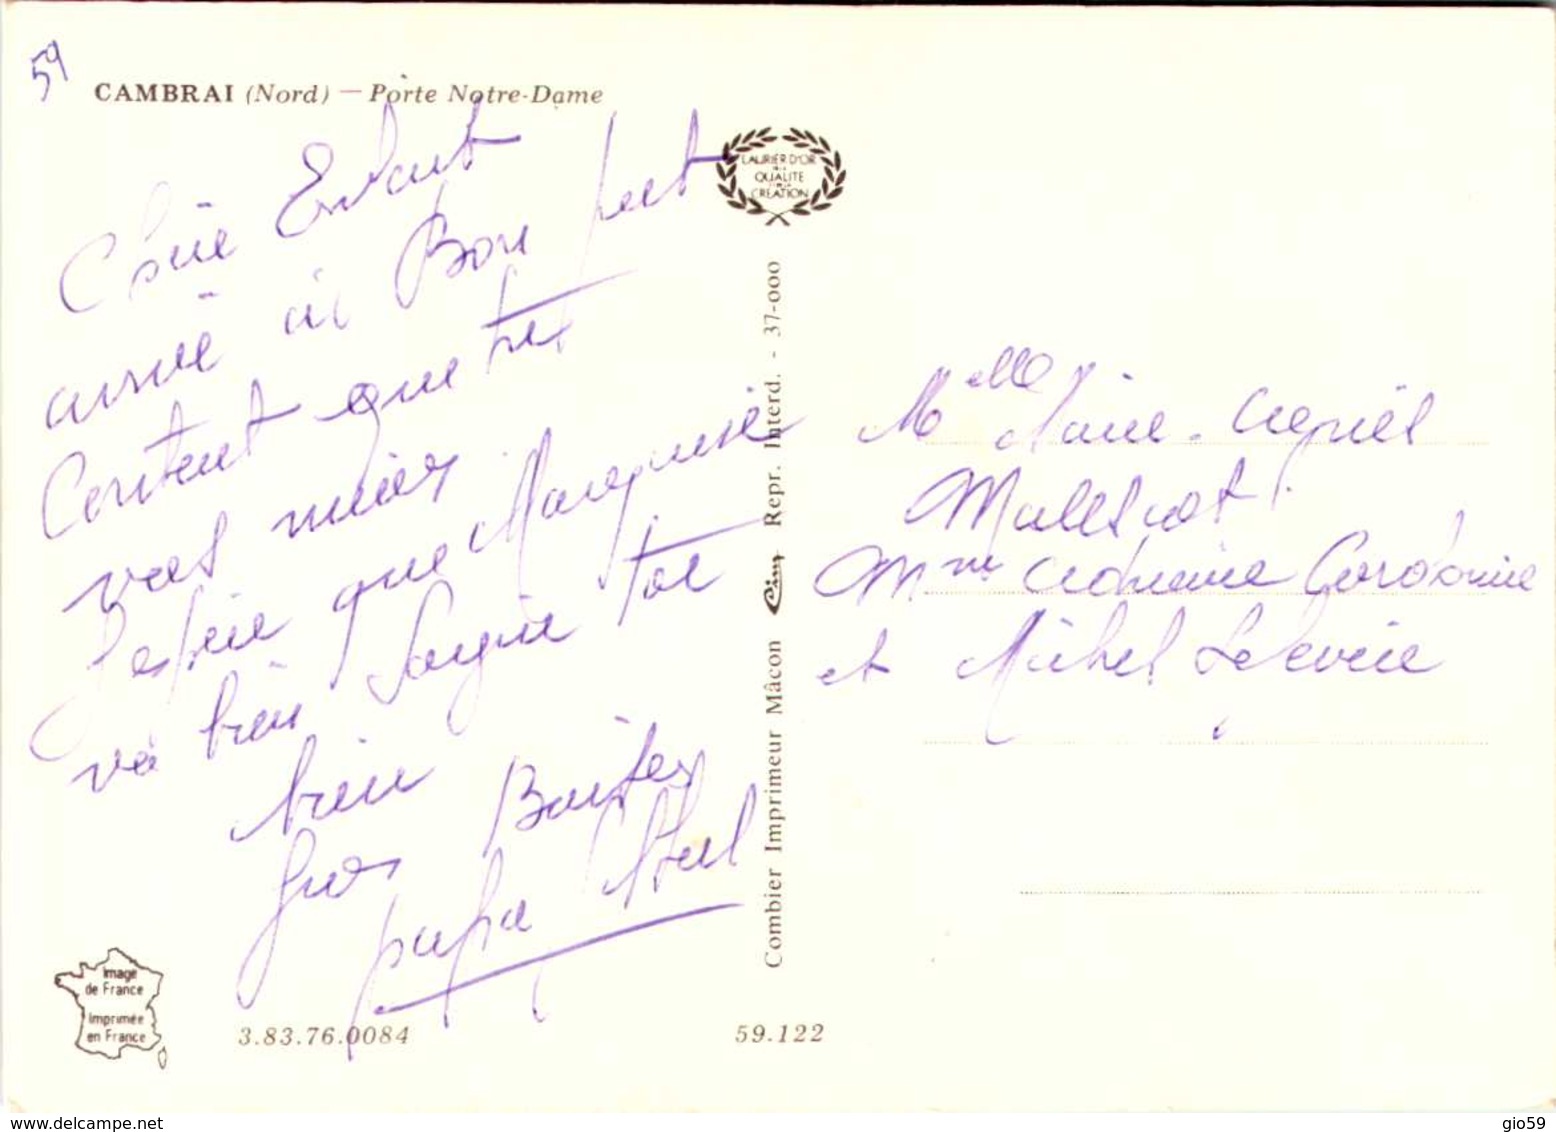 59
CAMBRAI (Nord) — Porte Notre-Dame
Chère Enfant
arrivé à Bon port
Content que tu
vas mieux
J'espère que
va bien Soigne toi
bien
gros
papa
LAURIER D'OR
DE LA
QUALITE
CREATION
Combier Imprimeur Mâcon Cim Repr. Interd. - 37-000
Mlle Marie-
Mme
et Michel
Image
de France
Imprimée
en France
3.83.76.0084
59.122
www.delcampe.net
gio59